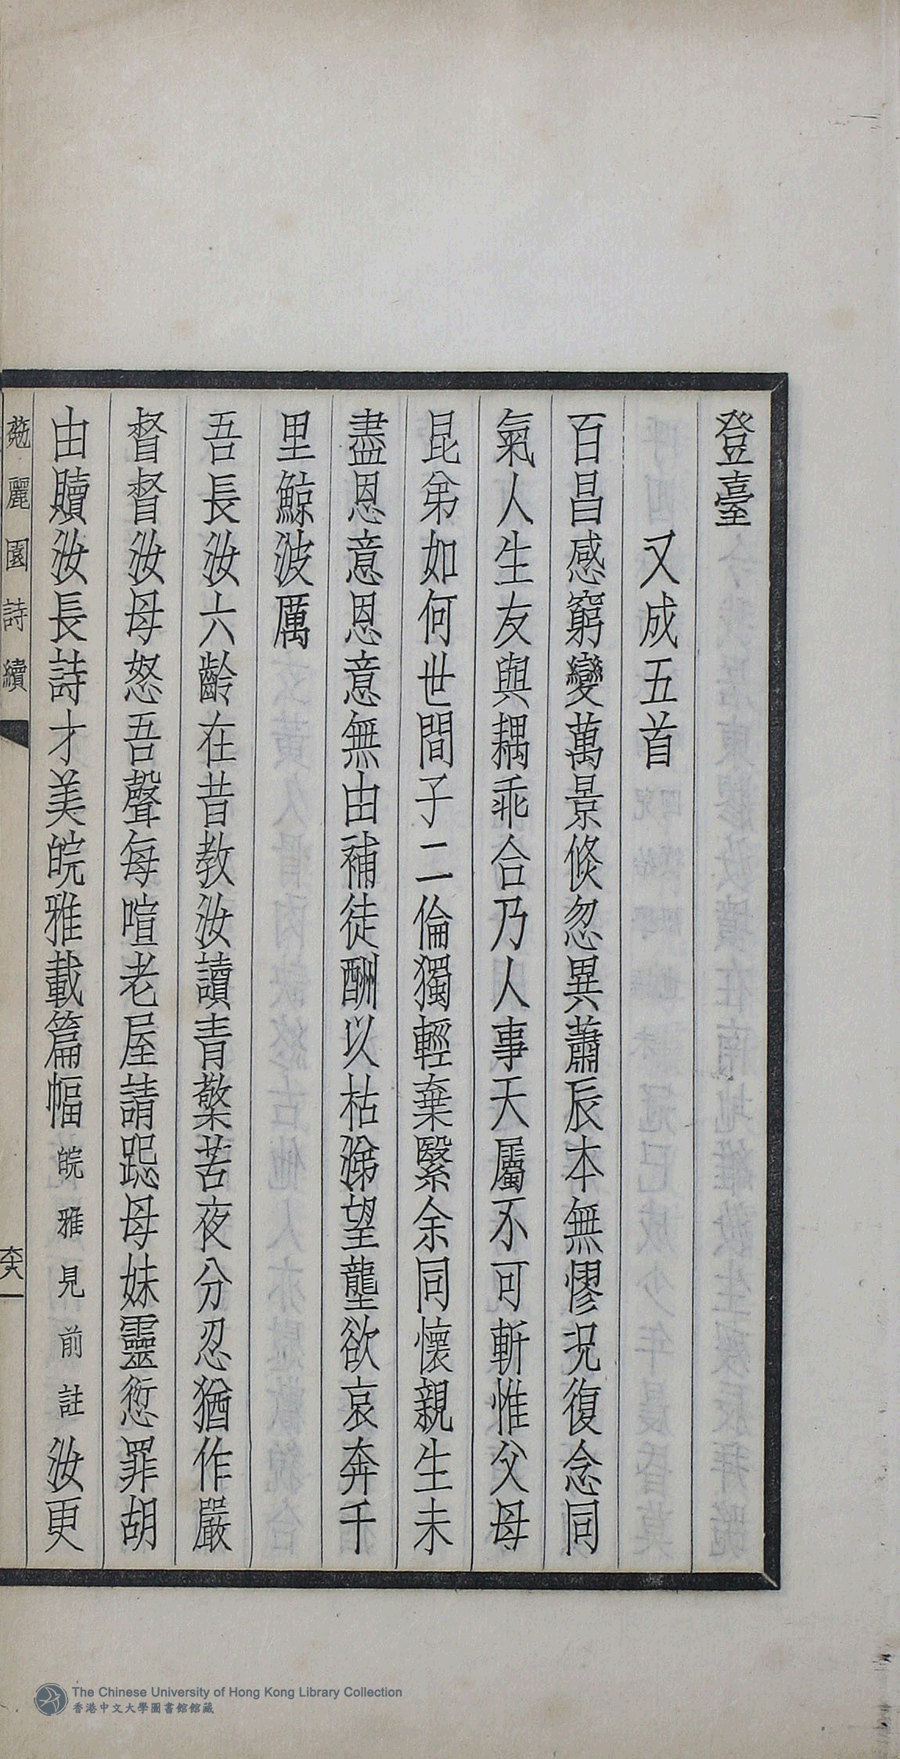 登臺
又成五首
百昌感窮變萬景倏忽異蕭辰本無憀况復念同
氣人生友與耦乖合乃人事天屬不可斬惟父母
昆弟如何世間子二倫獨輕棄緊余同懷親生未
盡恩意恩意無由補徒酬以枯涕望壟欲哀奔千
里鯨波厲
吾長汝六齡在昔教汝讀青檠苦夜分忍猶作嚴
督督汝母怒吾聲每喧老屋請跽母妹靈愆罪胡
由贖汝長詩才美皖雅載篇幅皖雅見前註汝更
麗園詩續
The Chinese University of Hong Kong Library Collection
香港中文大學圖書館館藏